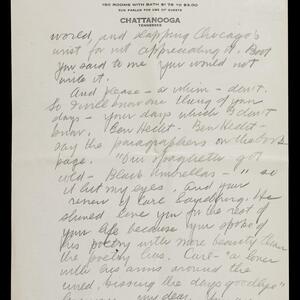 150 ROOMS WITH BATH $1.75 TO $3.00
SUN PARLOR FOR USE OF GUESTS
CHATTANOOGA
TENNESSEE
world, and slapping Chicago's
wrist for not appreciating it. But
you said to me you would not
write it.
And please – a whim – don't.
So I will know one thing of your
days – your days which I don't
know. Ben Hecht – Ben Hecht –
say the paragraphers on the
page. "Our spaghetti got
cold – Black Umbrellas – " so
it hit my eyes. And your
review of Carl Sandburg. He
should love you for the rest of
your life because you spoke of
his poetry with more beauty than
the poetry has. Carl – "a lover
with his arms around the
wind, kissing the days goodbye"
my dear.